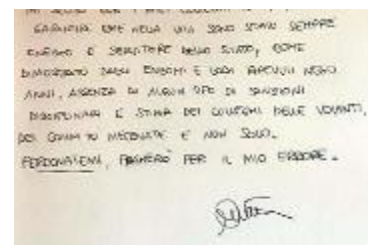 GARANTIRE CHE NELLA VITA SONO STATO SEMPRE
E SERVITORE DELLO STATO, COME
DIMOSTRATO DAGLI ENCOMI E LODI NEGLI
ANNI, ASSENZA DI ALCUN TIPO DI SANZIONI
DISCIPLINARI E STIMA DEI COLLEGHI DELLE VOLANTI,
DEL COMM.TO MECENATE E NON SOLO.
PERDONATEMI, PAGHERÒ PER IL MIO ERRORE.